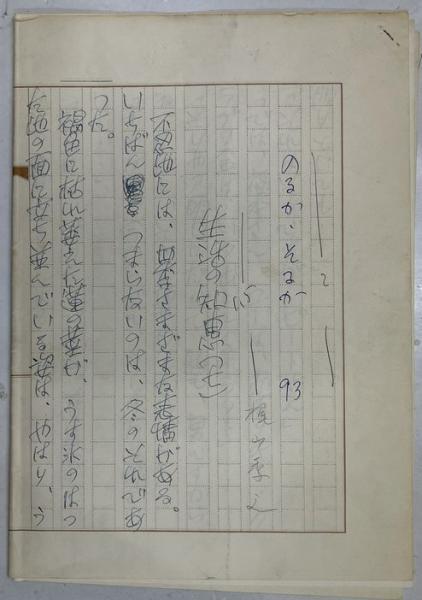 のるか・そるか 93
梶山季之
生活の知恵(七)
不忍池には、四季さまざまな表情がある。
いちばん つまらないのは、冬のそれであ
った。
縦に枯れた蓮の葉が、うす氷のはっ
た池の面に立ち並んでいる姿は、やはり、う